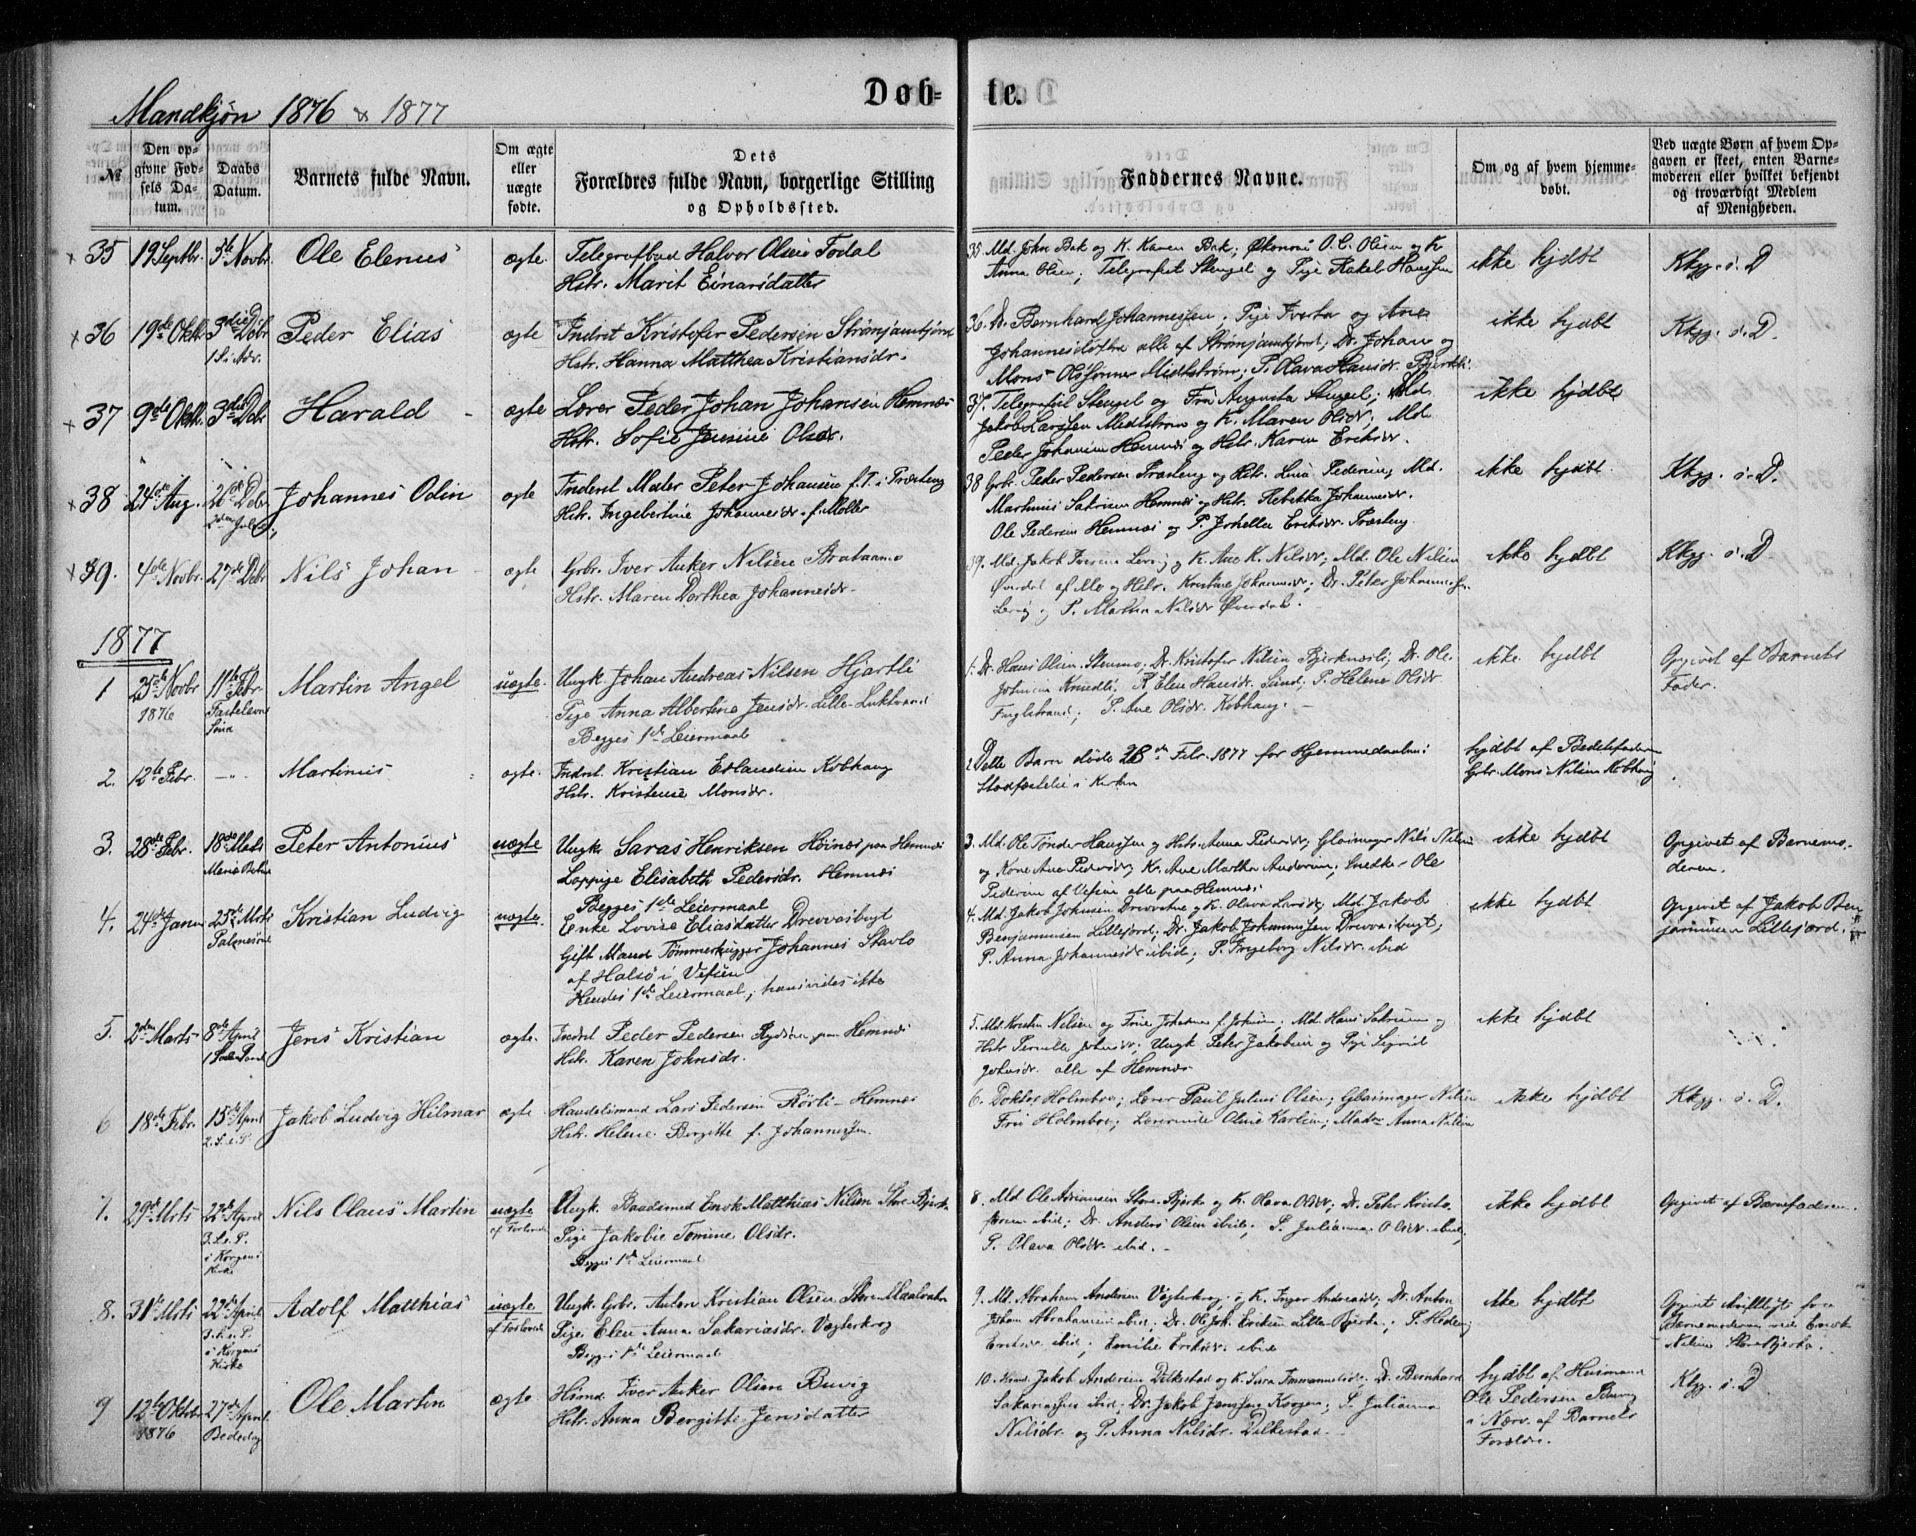 Mandkjøn 1876 & 1877
Døb-
te.
№
Den op-
givne Fød-
sels Da-
tum.
Daabs
Datum.
Barnets fulde Navn.
Om ægte
eller
uægte
fødte.
Dets
Forældres fulde Navn, borgerlige Stilling
og Opholdssted.
Faddernes Navne.
Om og af hvem hjemme-
døbt.
Ved uægte Børn af hvem Op-
gaven er skeet, enten Barne-
moderen eller hvilket bekjendt
og troværdigt Medlem
af Menigheden.
35 19 Septbr. 5te Novbr Ole Elenus ægte.
Telegrafbud Halvor Olsen Todal
Hstr. Marit Einarsdatter
35. Md. John Bek og K. Karen Bek; Økonom O. C. Olsen og K
Anna Olsen; Telegrafist Stengel og Pige Rakel Hanssen
ikke hjdbt
Kbg. s. D
36 19de Oktb 3die Debr
1 S. i Adv.
Peder Elias ægte
Inderst Kristofer Pedersen Strømjamtjord
Hstr. Hanna Matthea Kristiansdr.
36. Dr. Bernhard Johannessen; Pige Iverka og Ane
Johannesdøttre alle af Strømjamtjord; Dr. Johan og
Mons Olsønner Midtstrøm; P. Olava Hansdr.
ikke hjdbt
Kbg. s. D.
37 9de Oktb. 3die Debr Harald ægte
Lærer Peder Johan Johansen Hemnæs
Hstr. Sofie Jensine Olsdr.
37. Telegrafist Stengel og Fru Augusta Stengel; Md.
Jakob Larssen Midtstrøm og K. Maren Olsdr; Md.
Peder Johansen Hemnæs og Hstr. Karen Eriksdr.
ikke hjdbt
38 24de Aug. 26de Debr
2den Juled.
Johannes Odin ægte
Inderst Maler Peter Johansen f. T. i Præsteng
Hstr. Ingebertine Johannesdr. f. Møller
38 Grb. Peder Pedersen Præsteng og Hstr. Lina Pedersen; Md.
Martinus Sakrisen Hemnæs og Hstr. Rebekka Johannesdr.
Ole Pedersen Hemnæs og P. Eriksdr. Præsteng.
ikke hjdbt.
Kbg. s. D.
39. 4de Novbr. 27de Debr Nils Johan ægte
Grbr. Iver Anker Nilsen Brataamo
Hstr. Maren Dorthea Johannesdr.
39. Md. Jakob Iversen Lerog og K. Ane K. Nilsdr; Md. Ole Nilsen
Øverdal af Mo og Hstr. Kristine Johannesdr; Dr. Peter Johannessen
og P. Martha Nilsdr Øverdal.
ikke hjdbt
Kbg. s. D
1877
1 25de Novbr
1876
11te Febr
Fastelavns
Sønd
Martin Angel uægte.
Ungk Johan Andreas Nilsen Hjartli
Pige Anna Albertine Jensdr. Lille-Luktvand
Begges 1ste Leiermaal
1. Dr. Hans Olsen Stenmo, Dr. Kristofer Nilsen Bjerknæsli; Dr. Ole
Johnsen Knudli; K Elen Hansdr. Sund; P. Helene Olsdr
Fuglstrand; P. Ane Olsdr. Kobhaug.
ikke hjdbt
Opgivet af Barnets
Fader.
2. 12te Febr. -"- Martinus ægte.
Inderst. Kristian Erlandsen Kobhaug
Hstr. Kristense Monsdr.
2 Dette Barn døde 28de Febr. 1877 før Hjemmedaabens
Stadfæstelse i Kirken
hjdbt af Bedstefaderen
Grbr. Mons Nilsen Kobhaug
3. 28de Febr. 18de Mrts
Mariæ Beb.
Peter Antonius uægte
Ungk. Saras Henriksen Høinæs paa Hemnæs
Lappige Elisabeth Pedersdr. Hemnæs
Begges 1ste Leiermaal
3. Md. Ole Tønder Hanssen og Hstr. Anna Pedersdr, Glasmager Nils Nilsen
og Kone Ane Pedersdr; K. Ane Martha Andersen; Snedker Ole
Pedersen af Vefsen alle paa Hemnæs
ikke hjdbt
Opgivet af Barnemo-
deren.
4. 24de Januar 25de Mrts
Palmesønd
Kristian Ludvig uægte.
Enke Lovise Eliasdatter Drevvasbugt
Gift Mand Tømmerhugger Johannes Stavlo
af Halsø i Vefsen
Hendes 1ste Leiermaal, hans vides ikke
4. Md. Jakob Johnsen Drevvatne og K. Olava Larsdr; Md. Jakob
Benjaminsen Lillefjord; Dr. Jakob Johannessen Drevvasbugt;
P. Anna Johannesdr ibid; P. Ingeborg Nilsdr. ibid
ikke hjdbt
Opgivet af Jakob Ben-
jaminsen Lillefjord.
5. 2den Marts 8de April
1 S. e. Paask
Jens Kristian ægte.
Inderst Peder Pedersen Rydsaa paa Hemnæs
Hstr. Karen Johnsdr.
5. Md. Kristen Nilsen og Johnsen; Md. Hans Sakrisen og
Hstr Pernille Johnsdr; Ungk Peter Jakobsen og Pige Sigrid
Johnsdr. alle af Hemnæs
ikke hjdbt
6 18de Febr. 15de April
2. S. e. P.
Jakob Ludvig Hilmar ægte
Handelsmand Lars Pedersen Rørli - Hemnæs
Hstr. Helene Bergitte f. Johannessen.
6. Doktor Holmboe; Lærer Paul Julius Olsen; Glasmager Nilsen
Fru Holmboe; Lærerinde Oline Karlsen; Madm Anna Nilsen
ikke hjdbt
Kbg. s. D.
7. 29de Mrts 22de April
3. S. e. P.
i Korgens
Kirke
Nils Olaus Martin uægte
af Forlovede
Ungk. Baadsmd Enok Matthias Nilsen Store-Bjerka
Pige Jakobie Tomine Olsdr.
Begges 1ste Leiermaal
8. Md Ole Adriansen Store-Bjerka og K. Olava Olsdr; Dr. Peter Kristo-
fersen ibid; Dr. Anders Olsen ibid; P. Julianna Olsdr. ibid;
P. Olava Olsdr. ibid.
ikke hjdbt
Opgivet af Barnefaderen.
8. 31te Mrts 22de April
3. S. e. P.
i Korgens
Kirke
Adolf Matthias uægte
af Forlovede
Ungk. Grbr. Anton Kristian Olsen Store-Maalvatn
Pige Elen Anna Sakariasdr. Vægterkrog
Begges 1ste Leiermaal
9. Md. Abraham Andersen Vægterkrog og K. Inger Andersdr; Dr. Anton
Johan Abrahamsen ibid; Dr. Ole Joh. Eriksen Lille Bjerka; P. Hedevig
Eriksdr ibid; Emilie Eriksdr. ibid
ikke hjdbt
Opgivet skriftligt fra
Barnemoderen ved Enok
Nilsen Store Bjerka.
9 12te Oktbr
1876
27de April
Bededag
Ole Martin ægte.
Hsmd Iver Anker Olsen Buvig
Hstr. Anna Bergitte Jensdatter
10. Hsmd. Jakob Andersen Dilkestad og K. Sara Immanuelsdr; Dr. Bernhard
Sakariassen ibid; Dr. Jakob Jenssen Korgen; P. Julianna
Nilsdr. og P. Anna Nilsdr. Dilkestad.
hjdbt af Husmand
Ole Pedersen Buvig
i Nærv. af Barnets
Forældre.
Kbg. s. D